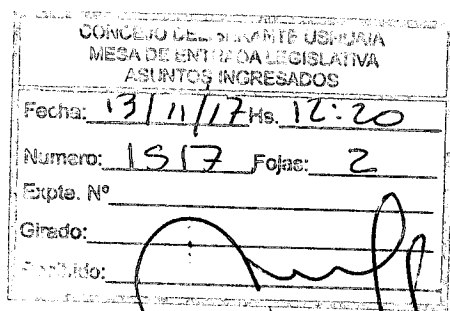 CONCEJO DELIBERANTE USHUAIA
MESA DE ENTRADA LEGISLATIVA
ASUNTOS INGRESADOS
Fecha: 13/11/17 Hs. 12:20
Numero: 1517 Fojas: 2
Expte. Nº
Girado:
Recibido: